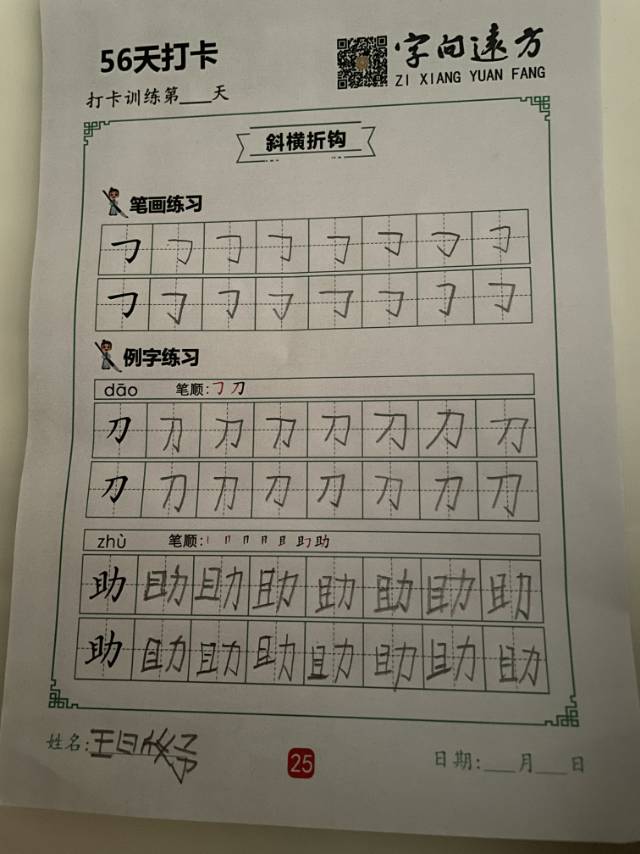 56天打卡
字向遠方
ZI XIANG YUAN FANG
打卡训练第___天
斜横折钩
笔画练习
㇆ ㇆ ㇆ ㇆ ㇆ ㇆ ㇆ ㇆
㇆ ㇆ ㇆ ㇆ ㇆ ㇆ ㇆ ㇆
例字练习
dāo 笔顺:㇆刀
刀 刀 刀 刀 刀 刀 刀 刀
刀 刀 刀 刀 刀 刀 刀 刀
zhù 笔顺:
助 助 助 助 助 助 助 助
助 助 助 助 助 助 助 助
姓名:
25
日期:___月___日